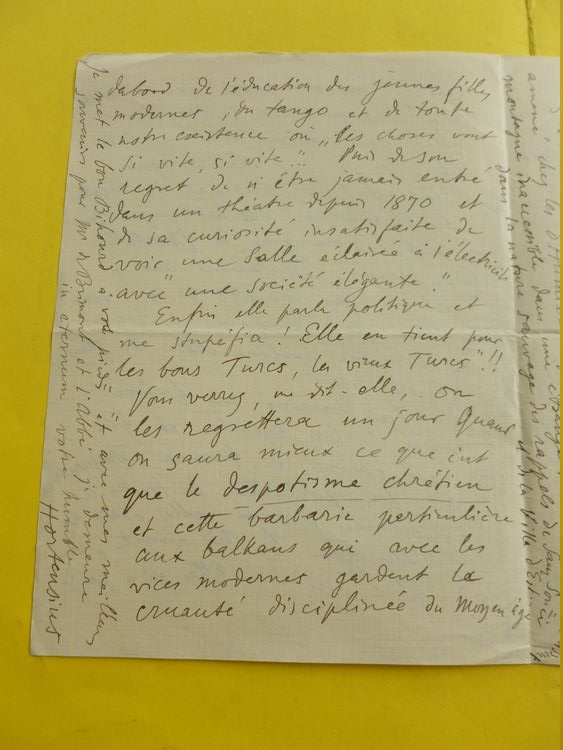 d'abord de l'éducation des jeunes filles
modernes, du tango et de toute
notre existence où „les choses vont
si vite, si vite"!. Puis de son
regret de n'être jamais entré
dans un théatre depuis 1870 et
de sa curiosité insatisfaite de
voir une salle éclairée à l'électricité
avec "une société élégante."
Enfin elle parle politique et
me stupéfia! Elle en tient pour
les bons Turcs, les vieux Turcs"!!
Vous verrez, me dit-elle, on
les regrettera un jour quand
on saura mieux ce que c'est
que le despotisme chrétien
et cette barbarie pertinulière
aux balkans qui avec les
vices modernes gardent la
cruauté disciplinée du Moyen âge
Je met le bon Bihourd a vos pieds et avec mes meilleurs
souvenirs pour Mr de Brimont et l'Abbé je demeure
in eternum votre humble
Hortensius
amène, chez les
montagne inaccessible dans une
dans la nature sauvage des rappels de Sans Souci
et de la Villa d'Este